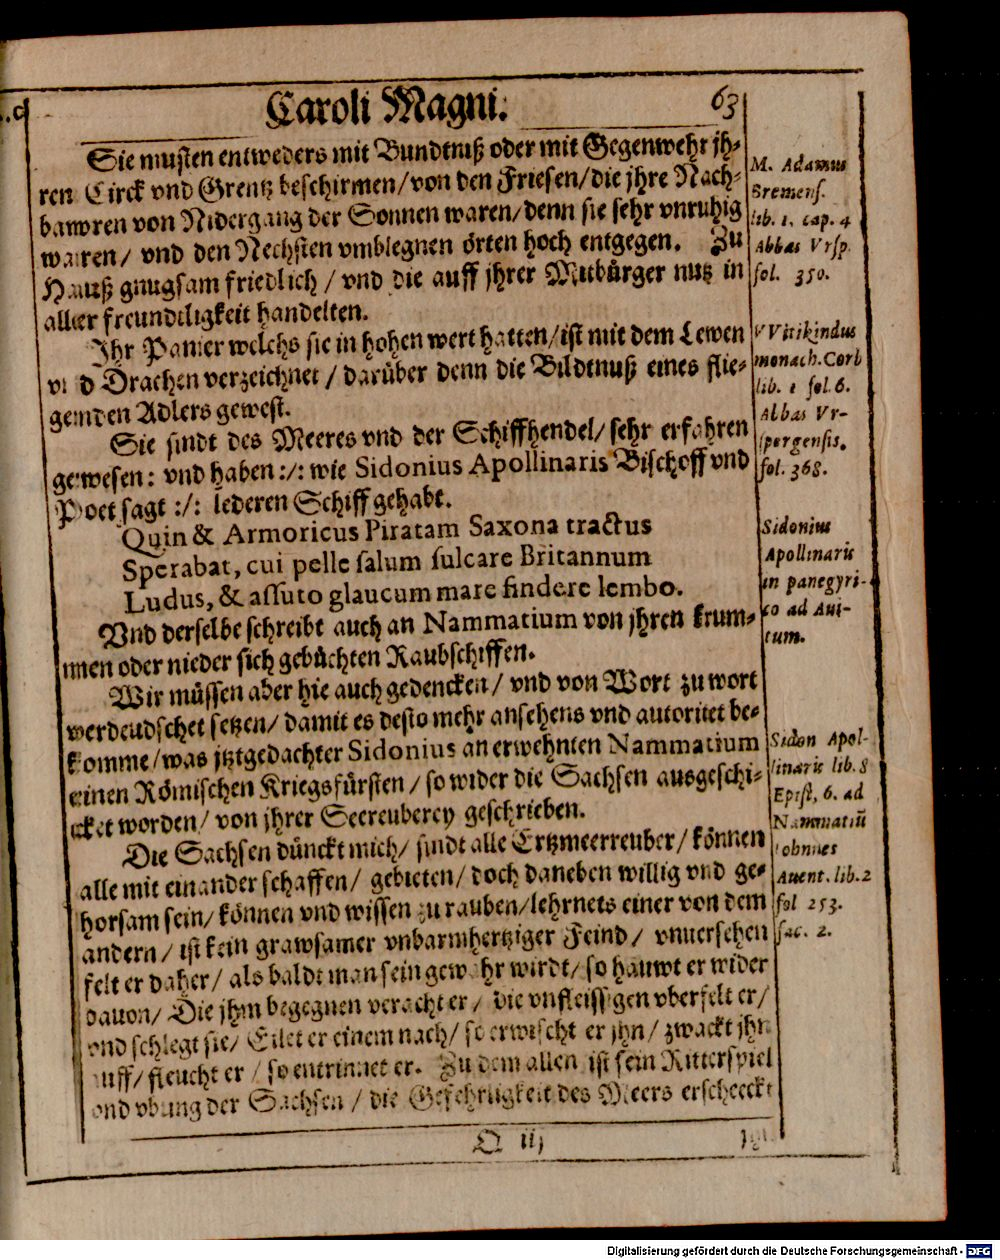 Caroli Magni. 63
Sie musten entweders mit Bundtnuß oder mit Gegenwehr jh-
ren Circk vnd Grentz beschirmen/von den Friesen/die jhre Nach-
bawren von Nidergang der Sonnen waren/denn sie sehr vnruhig
waren/ vnd den Nechsten vmblegnen örten hoch entgegen. Zu
Hauß gnugsam friedlich / vnd die auff jhrer Mitbürger nutz in
aller freundtligkeit handelten.
Ihr Panier welchs sie in hohen wert hatten/ist mit dem Lewen
vnd Drachen verzeichnet / darüber denn die Bildtnuß eines flie-
genden Adlers gewest.
Sie sindt des Meeres vnd der Schiffhendel/ sehr erfahren
gewesen: vnd haben :/: wie Sidonius Apollinaris Bischoff vnd
Poet sagt :/: lederen Schiff gehabt.
Quin & Armoricus Piratam Saxona tractus
Sperabat, cui pelle salum sulcare Britannum
Ludus, & assuto glaucum mare findere lembo.
Vnd derselbe schreibt auch an Nammatium von jhren krum-
men oder nieder sich gebüchten Raubschiffen.
Wir müssen aber hie auch gedencken / vnd von Wort zu wort
werdeudschet setzen/ damit es desto mehr ansehens vnd autoritet be-
komme/was jtztgedachter Sidonius an erwehnten Nammatium
einen Römischen Kriegsfürsten / so wider die Sachsen ausgeschi-
cket worden/ von jhrer Seereuberey geschrieben.
Die Sachsen dünckt mich/ sindt alle Ertzmeerreuber/ können
alle mit einander schaffen/ gebieten/ doch daneben willig vnd ge-
horsam sein/ können vnd wissen zu rauben/lehrnets einer von dem
andern / ist kein grawsamer vnbarmhertziger Feind / vnuersehen
felt er daher/ als baldt man sein gewahr wirdt/ so hauwt er wider
dauon/ Die jhm begegnen veracht er / die vnfleissigen vberfelt er/
vnd schlegt sie/ Eilet er einem nach/ so erwischt er jhn/ zwackt jhn
auff/ fleucht er / so entrinnet er. Zu dem allen ist sein Ritterspiel
vnd vbung der Sachsen / die Gefehrligkeit des Meers erscheeckt
Q iij
M. Adamus
Bremens.
lib. 1. cap. 4
Abbas Vrsp.
fol. 350.
VVitikindus
monach. Corb
lib. 1 fol. 6.
Abbas Vr-
spergensis.
fol. 368.
Sidonius
Apollinaris
in panegyri-
co ad Aui-
tum.
Sidon Apol-
linaris lib. 8
Epist, 6. ad
Nammatiū
Iohnnes
Auent. lib. 2
fol 253.
fac. 2.
Digitalisierung gefördert durch die Deutsche Forschungsgemeinschaft - DFG